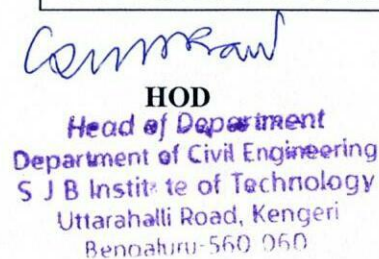 HOD
Head of Department
Department of Civil Engineering
S J B Institute of Technology
Uttarahalli Road, Kengeri
Bengaluru-560 060